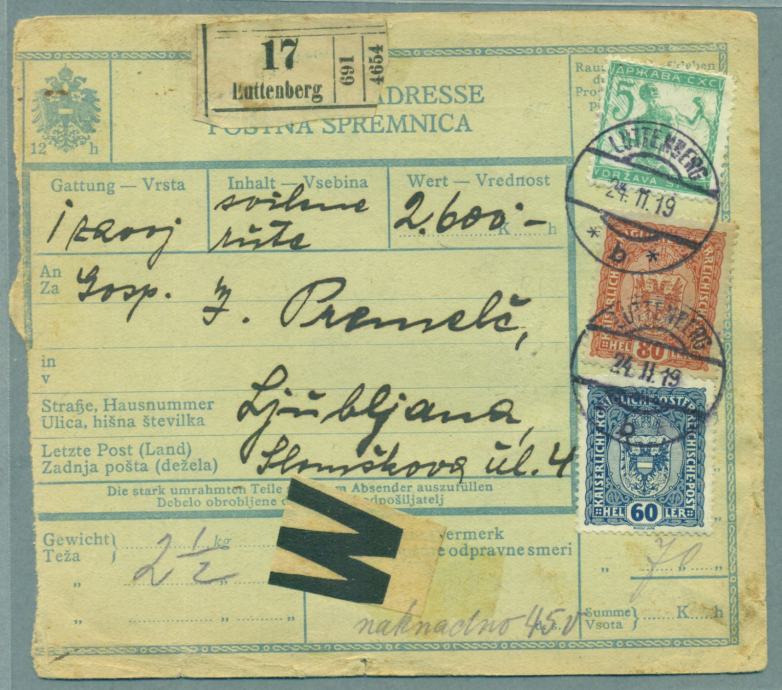 17
Luttenberg
691
4654
ADRESSE
POŠTNA SPREMNICA
12 h
Gattung — Vrsta
Inhalt — Vsebina
Wert — Vrednost
1 zavoj
svilene
rute
2.600·-
K h
An
Za
Gosp. J. Premelč,
in
v
Straße, Hausnummer
Ulica, hišna številka
Ljubljana,
Letzte Post (Land)
Zadnja pošta (dežela)
Slomškova ul. 4
Die stark umrahmten Teile m Absender auszufüllen
Debelo obrobljene dpošiljatelj
Gewicht
Teža
kg
2 1/2
W
vermerk
odpravne smeri
70
naknadno 45 v
Summe
Vsota
K h
ДРЖАВА СХС
5
DRŽAVA S
LUTTENBERG
24.11.19
* b *
KAISERLICHE KÖNIGLICHE ÖSTERREICHISCHE POST
HELLER
80
LUTTENBERG
24.11.19
b
KAISERLICHE KÖNIGLICHE ÖSTERREICHISCHE POST
HEL 60 LER